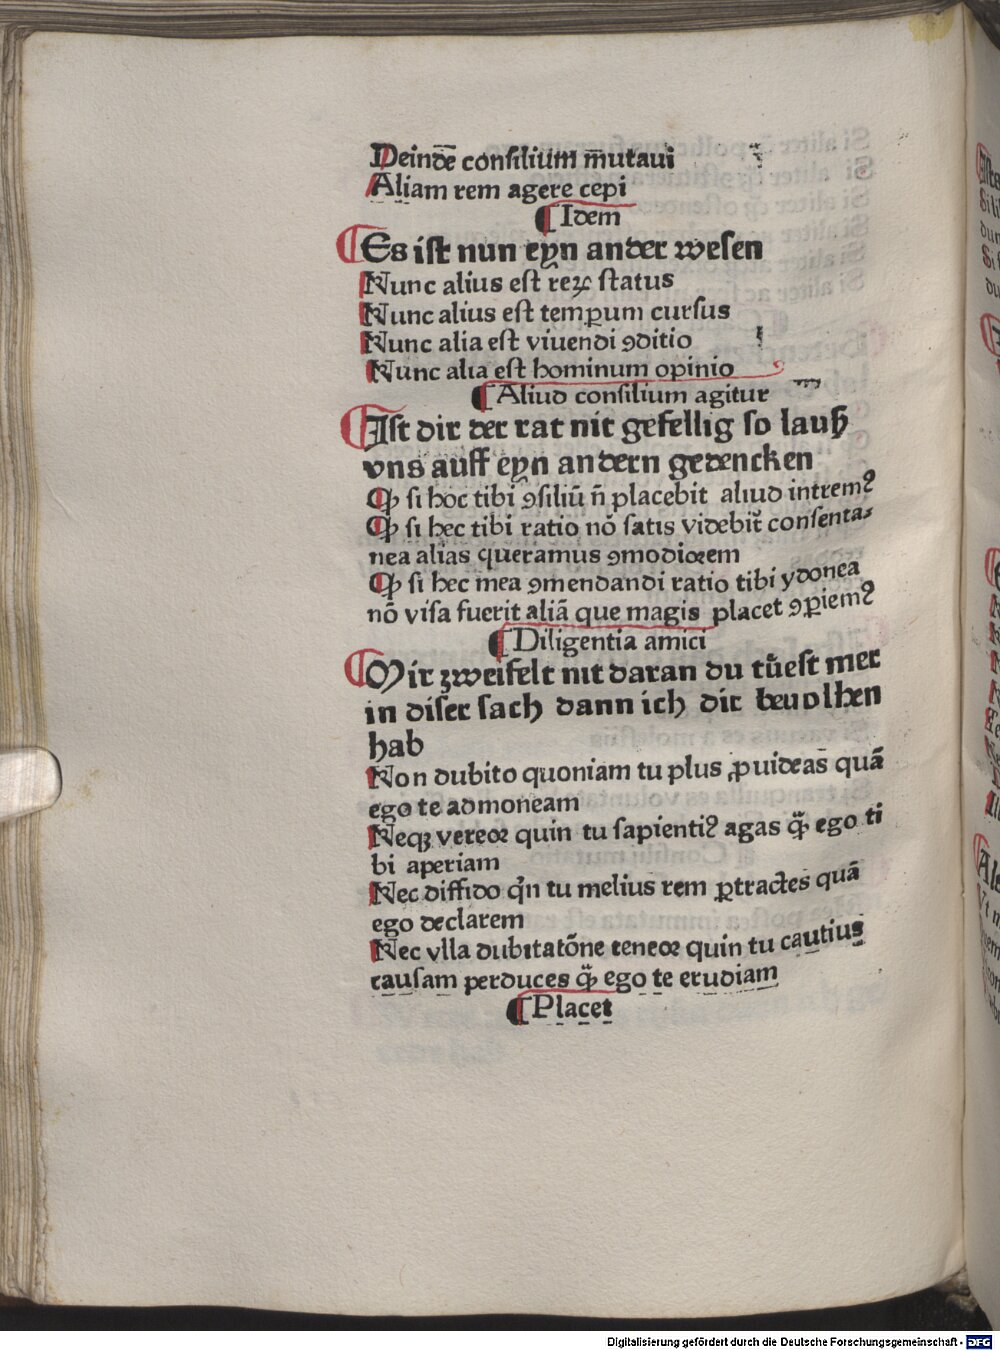 Deindē consilium m̄utaui
Aliam rem agere cepi
¶ Idem
¶ Es ist nun eyn ander wesen
Nunc alius est reꝝ status
Nunc alius est temꝑum cursus
Nunc alia est viuendi ꝯditio
Nunc alia est hominum opinio
¶ Aliud consilium agitur
¶ Ist dir der rat nit gefellig so lauß
vns auff eyn andern gedencken
Ꝙ si hoc tibi ꝯsiliū n̄ placebit aliud intremꝰ
Ꝙ si hec tibi ratio nō satis videbit᷑ consenta⸗
nea alias queramus ꝯmodiorem
Ꝙ si hec mea ꝯmendandi ratio tibi ydonea
nō visa fuerit aliā que magis placet ꝯꝑiemꝰ
¶ Diligentia amici
¶ Mir zweifelt nit daran du tůest mer
in diser sach dann ich dir beuolhen
hab
Non dubito quoniam tu plus ꝓuideas quā
ego te admoneam
Neqꝫ vereor quin tu sapientiꝰ agas ꝙ̄ ego ti
bi aperiam
Nec diffido qn̄ tu melius rem ꝑtractes quā
ego declarem
Nec vlla dubitatōne teneor quin tu cautius
causam perduces ꝙ̄ ego te erudiam
¶ Placet
Digitalisierung gefördert durch die Deutsche Forschungsgemeinschaft - DFG